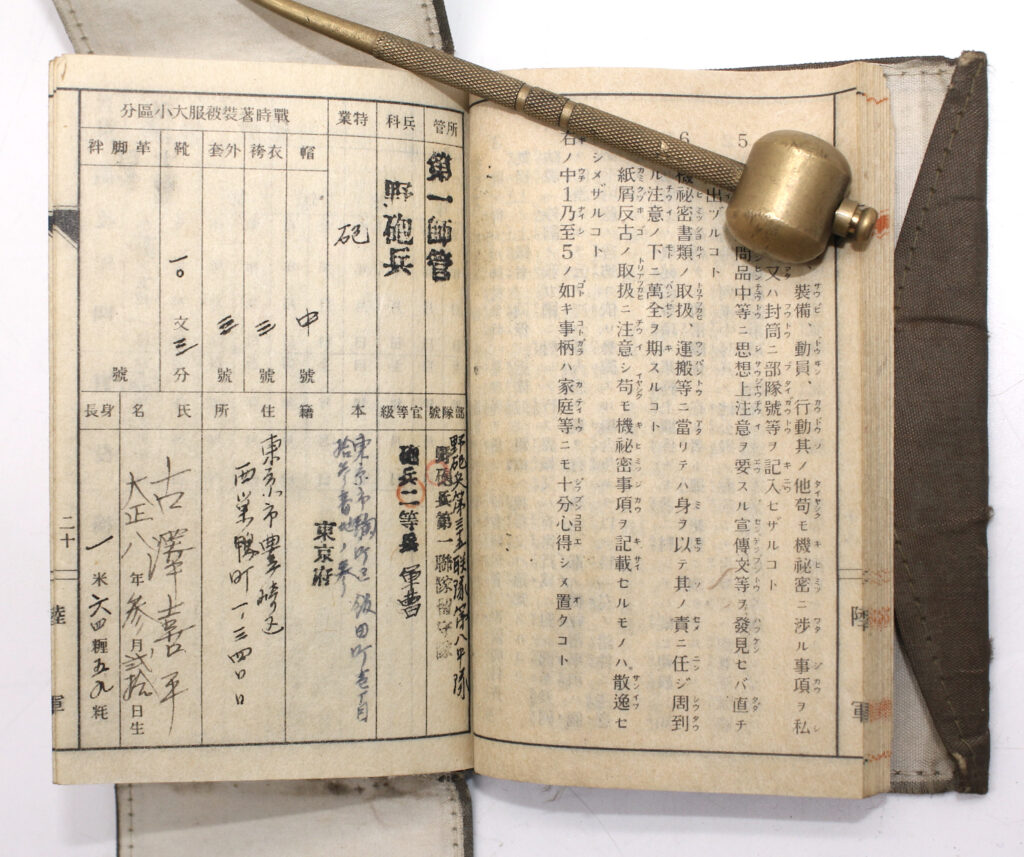 装備、動員、行動其ノ他苟モ機祕密ニ渉ル事項ヲ私
又ハ封筒ニ部隊號等ヲ記入セザルコト
5
問品中等ニ思想上注意ヲ要スル宣傳文等ヲ發見セバ直チ
出ヅルコト
6
機祕密書類ノ取扱、運搬等ニ當リテハ身ヲ以テ其ノ責ニ任ジ周到
ル注意ノ下ニ萬全ヲ期スルコト
紙屑反古ノ取扱ニ注意シ苟モ機祕密事項ヲ記載セルモノハ散逸セ
シメザルコト
右ノ中1乃至5ノ如キ事柄ハ家庭等ニモ十分心得シメ置クコト
陸軍
所管
第一師管
兵科
砲兵
特業
砲
戰時著裝被服大小區分
帽
中號
衣袴
三號
外套
三號
靴
一〇文三分
革脚袢
號
部隊號
野砲兵第三五聯隊第八中隊
野砲兵第一聯隊留守隊
官等級
砲兵二等兵
軍曹
本籍
東京市麴町區飯田町壱丁目
拾番地ノ參
東京府
住所
東京市豐崎区
西巢鴨町一ノ三四〇〇
氏名
古澤喜平
大正八年參月貳拾日生
身長
一米六四糎五九粍
二十
陸軍